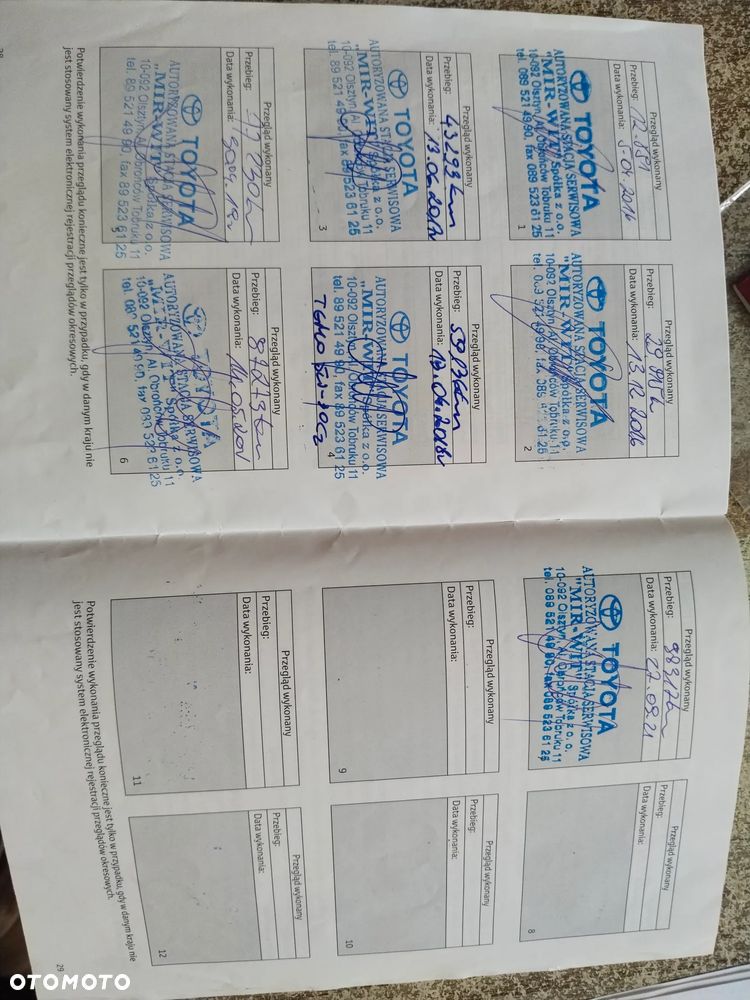 Przegląd wykonany
Przebieg: 12 851
Data wykonania: 5.04.2016
TOYOTA
AUTORYZOWANA STACJA SERWISOWA
"MIR-WIT" Spółka z o.o.
10-092 Olsztyn, Al. Obrońców Tobruku 11
tel. 089 521 49 90, fax 089 523 61 25
1
Przegląd wykonany
Przebieg:
Data wykonania: 13.12.2016
TOYOTA
AUTORYZOWANA STACJA SERWISOWA
"MIR-WIT" Spółka z o.o.
10-092 Olsztyn, Al. Obrońców Tobruku 11
2
Przegląd wykonany
Przebieg: 43293 km
Data wykonania:
TOYOTA
AUTORYZOWANA STACJA SERWISOWA
"MIR-WIT" Spółka z o.o.
10-092 Olsztyn, Al. Obrońców Tobruku 11
tel. 89 521 49 90, fax 89 523 61 25
3
Przegląd wykonany
Przebieg:
Data wykonania:
TOYOTA
AUTORYZOWANA STACJA SERWISOWA
"MIR-WIT" Spółka z o.o.
10-092 Olsztyn, Al. Obrońców Tobruku 11
tel. 89 521 49 90, fax 89 523 61 25
4
Przegląd wykonany
Przebieg:
Data wykonania:
TOYOTA
AUTORYZOWANA STACJA SERWISOWA
"MIR-WIT" Spółka z o.o.
10-092 Olsztyn, Al. Obrońców Tobruku 11
tel. 89 521 49 90, fax 89 523 61 25
5
Przegląd wykonany
Przebieg: 87273 km
Data wykonania:
TOYOTA
AUTORYZOWANA STACJA SERWISOWA
"MIR-WIT" Spółka z o.o.
10-092 Olsztyn, Al. Obrońców Tobruku 11
6
Potwierdzenie wykonania przeglądu konieczne jest tylko w przypadku, gdy w danym kraju nie
jest stosowany system elektronicznej rejestracji przeglądów okresowych.
28
Przegląd wykonany
Przebieg: 98317 km
Data wykonania: 27.09.21
TOYOTA
AUTORYZOWANA STACJA SERWISOWA
"MIR-WIT" Spółka z o.o.
10-092 Olsztyn, Al. Obrońców Tobruku 11
tel. 089 521 49 90, fax 089 523 61 25
Przegląd wykonany
Przebieg:
Data wykonania:
8
Przegląd wykonany
Przebieg:
Data wykonania:
9
Przegląd wykonany
Przebieg:
Data wykonania:
10
Przegląd wykonany
Przebieg:
Data wykonania:
11
Przegląd wykonany
Przebieg:
Data wykonania:
12
Potwierdzenie wykonania przeglądu konieczne jest tylko w przypadku, gdy w danym kraju nie
jest stosowany system elektronicznej rejestracji przeglądów okresowych.
29
OTOMOTO